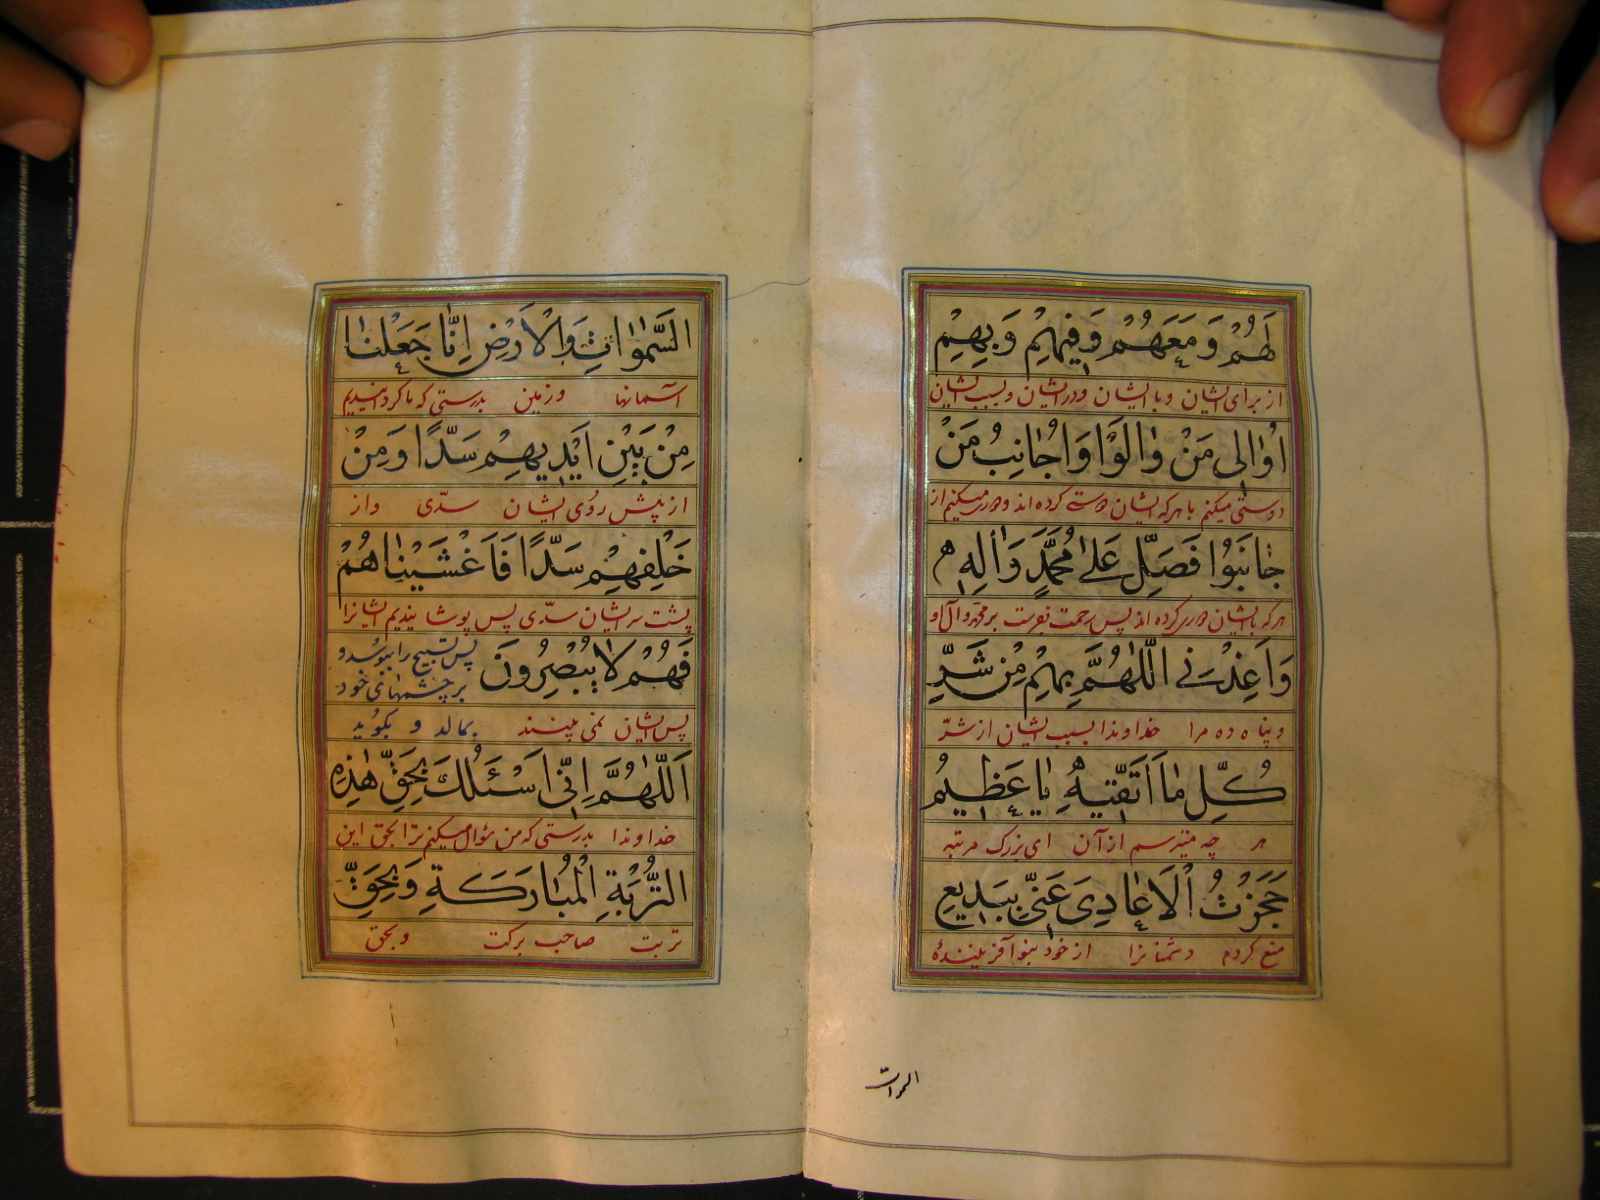 لَهُمْ وَمَعَهُمْ وَفِيهِمْ وَبِهِمْ
از برای ایشان و با ایشان و در ایشان و بسبب ایشان
اُوٰالی مَنْ وٰالَوْا وَاُجٰانِبُ مَنْ
دوستی میکنم با هر که ایشان دوستی کرده اند و دوری میکنم از
جٰانَبُوا فَصَلِّ عَلیٰ مُحَمَّدٍ وَاٰلِهِ
هر که با ایشان دوری کرده اند پس رحمت بفرست بر محمد و آل او
وَاَعِذْنی اَللّٰهُمَّ بِهِمْ مِنْ شَرِّ
و پناه ده مرا خداوندا بسبب ایشان از شرّ
کُلِّ مٰا اَتَّقیهِ یٰا عَظیمُ
هر چه میترسم از آن ای بزرک مرتبه
حَجَزْتُ الْاَعٰادِیَ عَنّی بِبَدیعِ
منع کردم دشمنانرا از خود بنوآفرینندۀ
السموات
السَّمٰوٰاتِ وَالْاَرْضِ اِنّٰا جَعَلْنٰا
آسمانها و زمین بدرستی که ما گردانیدیم
مِنْ بَیْنِ اَیْدیهِمْ سَدًّا وَمِنْ
از پیش روی ایشان سدّی و از
خَلْفِهِمْ سَدًّا فَاَغْشَیْنٰاهُمْ
پشت سر ایشان سدّی پس پوشانیدیم ایشانرا
فَهُمْ لٰا یُبْصِرُونَ پس تسبیح را ببوسد و
بر چشمهای خود
پس ایشان نمی بینند بمالد و بکوید
اَللّٰهُمَّ اِنّی اَسْئَلُکَ بِحَقِّ هٰذِهِ
خداوندا بدرستی که من سؤال میکنم ترا بحق این
التُّرْبَةِ الْمُبٰارَکَةِ وَبِحَقِّ
تربت صاحب برکت و بحق